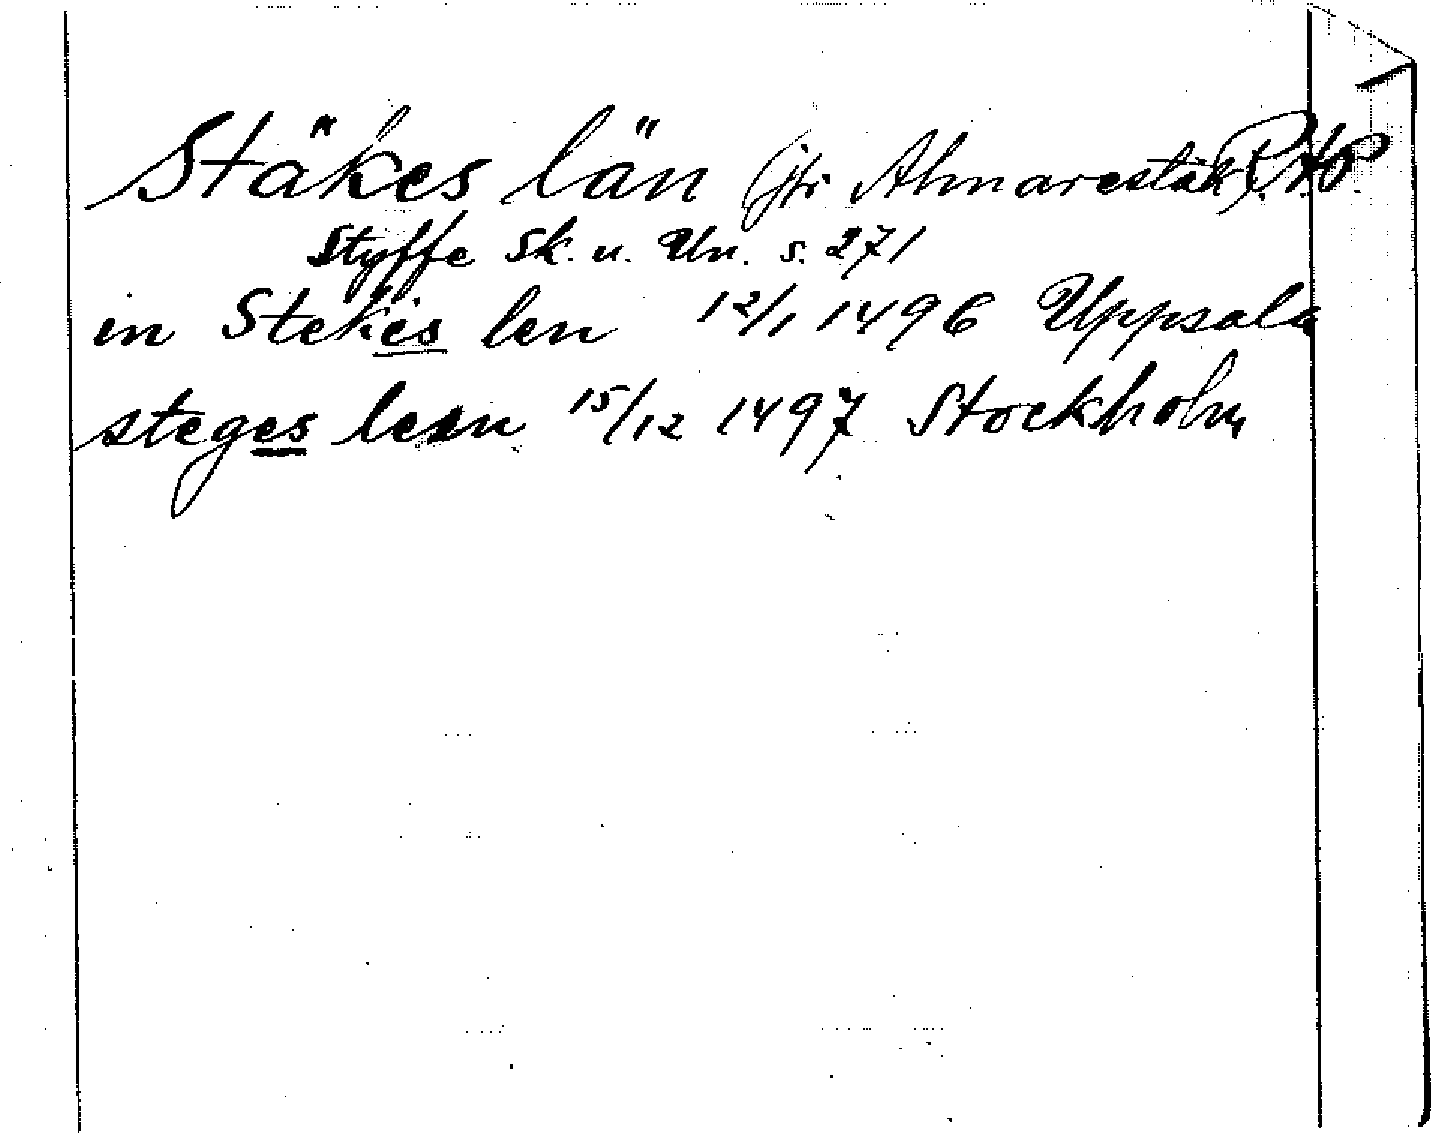 Stäkes län (jfr Almarestäk R.
Styffe Sk. u. Un. s. 271
in Stekeis len 12/1 1496 Uppsala
steges leen 15/12 1497 Stockholm